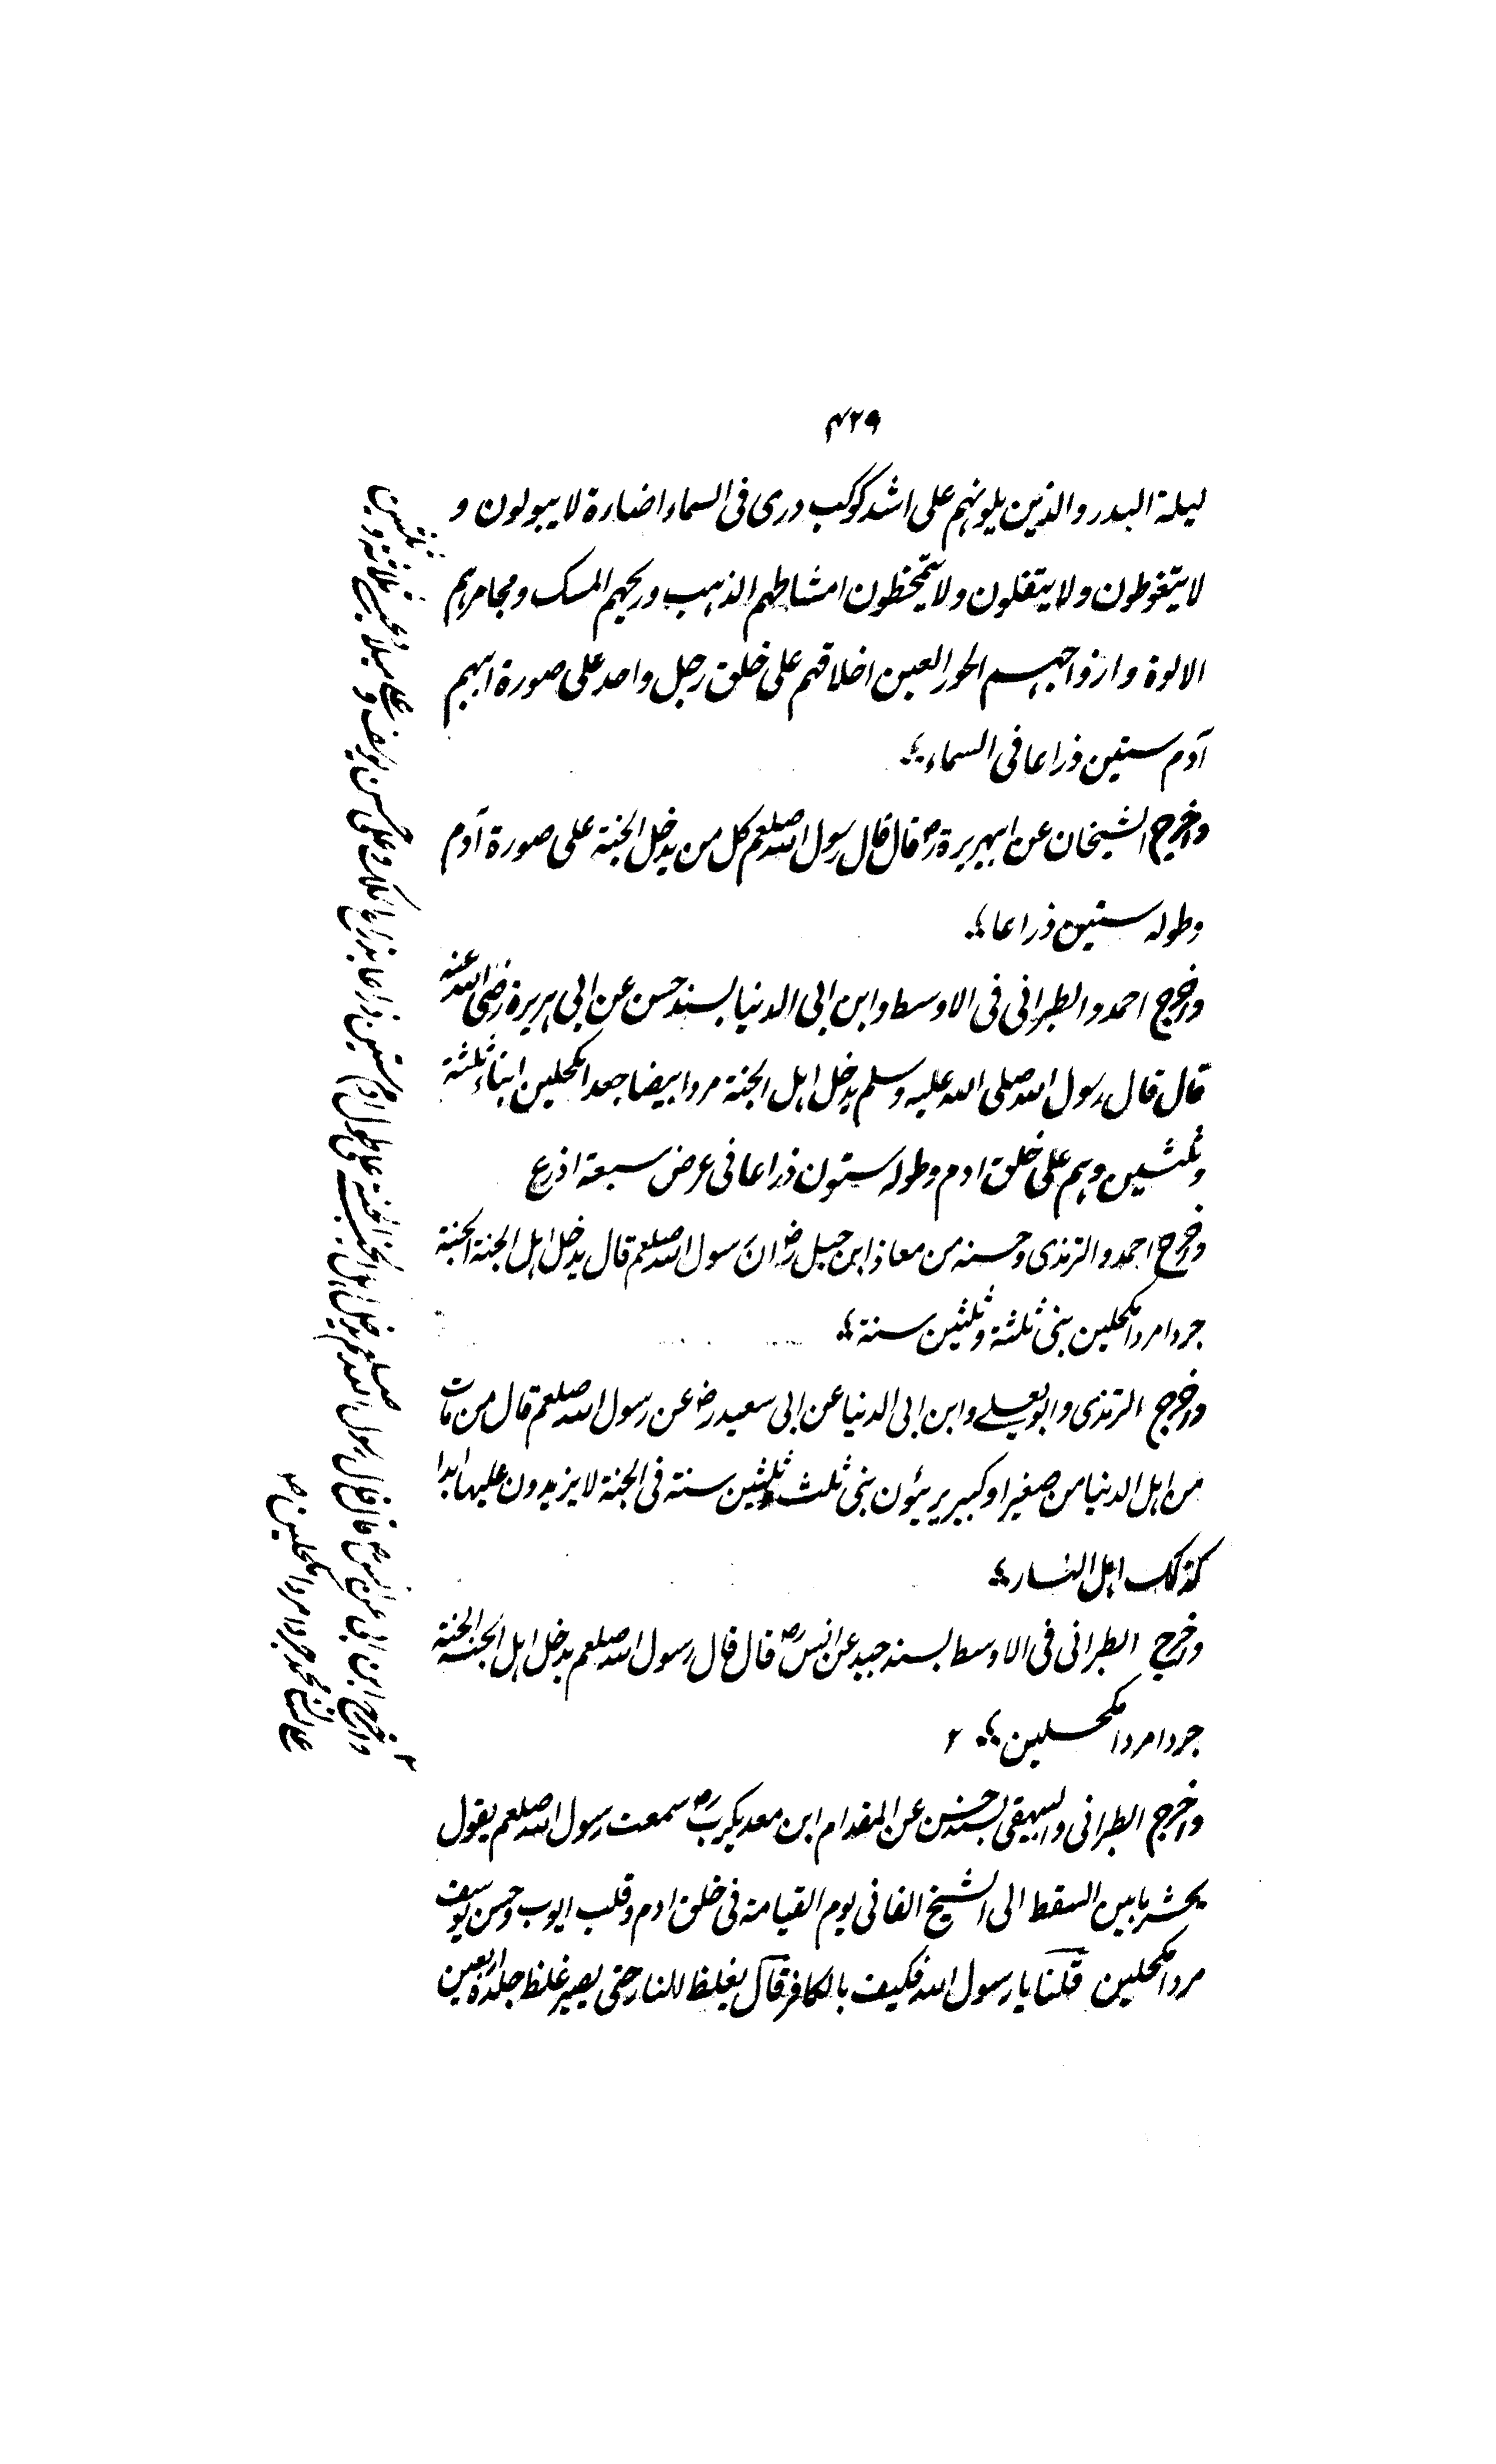 ۴۲۹
ليلة البدر والذين يلونهم على اشد كوكب درى فى السماء اضاءة لا يبولون و
لا يتغوطون ولا يتفلون ولا يتمخطون امشاطهم الذهب وريحهم المسك ومجامرهم
الالوة وازواجهم الحور العين اخلاقهم على خلق رجل واحد على صورة ابيهم
آدم ستين ذراعا فى السماء
واخرج الشيخان عن ابيهريرة رض قال قال رسول الله صلعم كل من يدخل الجنة على صورة آدم
وطوله ستين ذراعا
واخرج احمد والطبرانى فى الاوسط وابن ابى الدنيا بسند حسن عن ابى هريرة رضى الله عنه
قال قال رسول الله صلى الله عليه وسلم يدخل اهل الجنة مردا بيضا جعدا مكحلين ابناء ثلثة
وثلثين وهم على خلق ادم وطوله ستون ذراعا فى عرض سبعة اذرع
واخرج احمد والترمذى وحسنه من معاذ ابن جبل رض ان رسول الله صلعم قال يدخل اهل الجنة الجنة
جردا مردا مكحلين بنى ثلثة وثلثين سنة
واخرج الترمذى وابو يعلے وابن ابى الدنيا عن ابى سعيد رض عن رسول الله صلعم قال من مات
من اهل الدنيا من صغير او كبير يرئون بنى ثلث وثلثين سنة فى الجنة لا يزيدون عليها ابدا
كذلك اهل النار
واخرج الطبرانى فى الاوسط بسند جيد عن انس رض قال قال رسول الله صلعم يدخل اهل الجنة الجنة
جردا مردا مكحلين ۲
واخرج الطبرانى والبيهقى بسند حسن عن المقدام ابن معديكرب رض سمعت رسول الله صلعم يقول
يحشر ما بين السقط الى الشيخ الفانى يوم القيامة فى خلق ادم وقلب ايوب وحسن يوسف
مردا مكحلين قلنا يا رسول الله فكيف بالكافر قال يغلظ للنار حتى يصير غلظ جلده اربعين
۲ واخرج ابن ابى عن انس رض قال قال رسول الله صلعم يدخل اهل الجنة الجنة على طول آدم ستين ذراعا بذراع الملك وعلى حسن يوسف و على ميلاد عيسى ثلاثة وثلثين
لسان محمد جردا مردا مكحلين